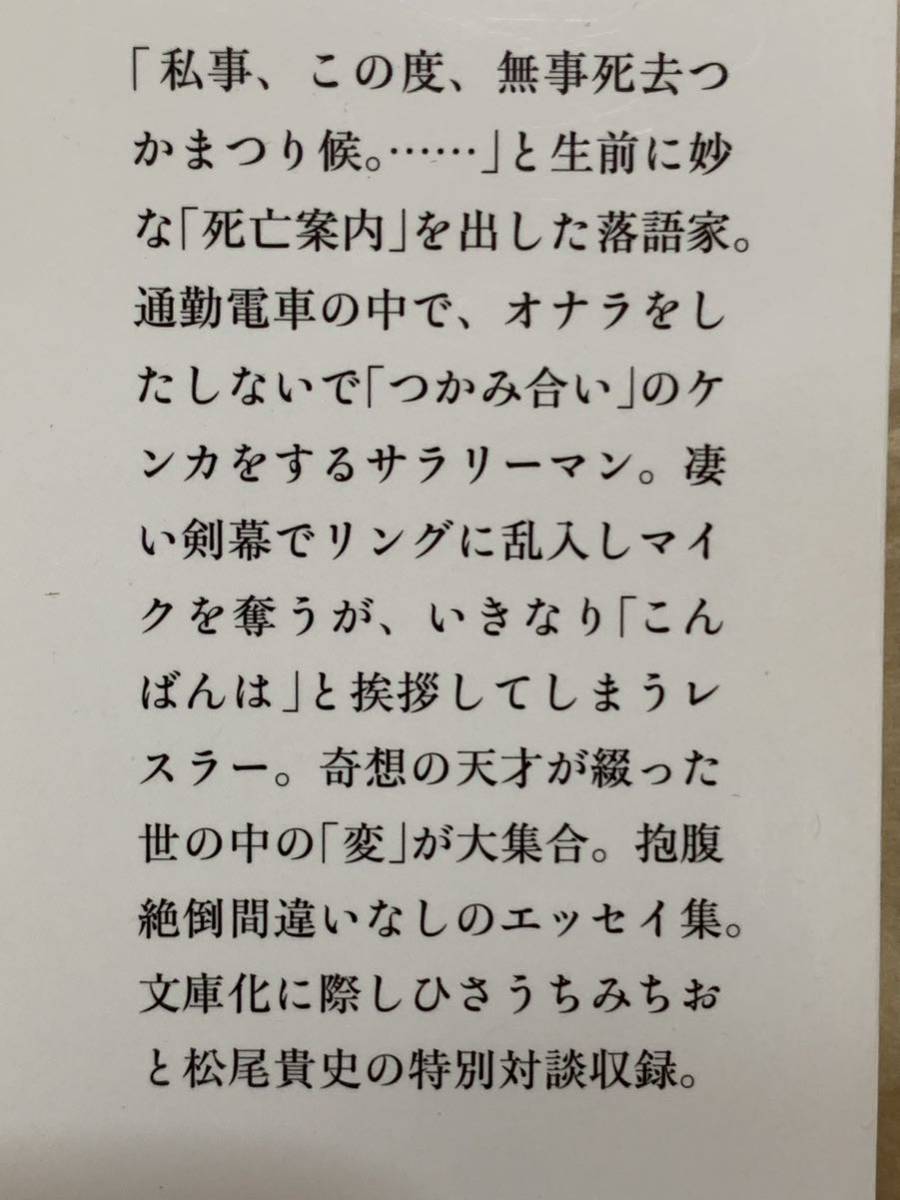 「私事、この度、無事死去つ
かまつり候。……」と生前に妙
な「死亡案内」を出した落語家。
通勤電車の中で、オナラをし
たしないで「つかみ合い」のケ
ンカをするサラリーマン。凄
い剣幕でリングに乱入しマイ
クを奪うが、いきなり「こん
ばんは」と挨拶してしまうレ
スラー。奇想の天才が綴った
世の中の「変」が大集合。抱腹
絶倒間違いなしのエッセイ集。
文庫化に際しひさうちみちお
と松尾貴史の特別対談収録。